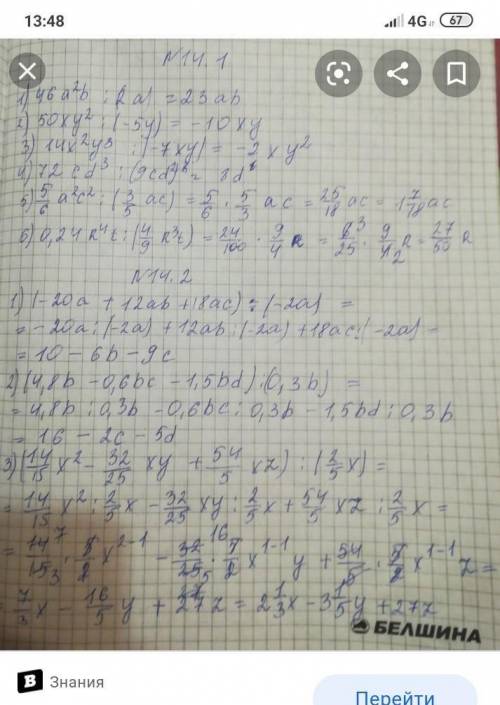 13:48
4G 67
N14.1
1) 46a²b : (2a) = 23ab
2) 50xy² : (-5y) = -10xy
3) 14x²y³ : (-7xy) = -2xy²
4) 72cd³ : (9cd) = 8d²
5) 5/6 a²c² : (3/5 ac) = 5/6 · 5/3 ac = 25/18 ac = 1 7/18 ac
6) 0,24k⁴t : (4/9 k³t) = 24/100 · 9/4 k = 6³/25 · 9/4₂ k = 27/50 k
N14.2
1) (-20a + 12ab + 18ac) : (-2a) =
= -20a : (-2a) + 12ab : (-2a) + 18ac : (-2a) =
= 10 - 6b - 9c
2) (4,8b - 0,6bc - 1,5bd) : (0,3b) =
= 4,8b : 0,3b - 0,6bc : 0,3b - 1,5bd : 0,3b
= 16 - 2c - 5d
3) (14/15 x² - 32/25 xy + 54/5 xz) : (2/5 x) =
= 14/15 x² : 2/5 x - 32/25 xy : 2/5 x + 54/5 xz : 2/5 x =
= 14⁷/15₃ · 5/2 x²⁻¹ - 32¹⁶/25₅ · 5/2 x¹⁻¹ y + 54/5 · 5/2 x¹⁻¹ z =
= 7/3 x - 16/5 y + 27z = 2 1/3 x - 3 1/5 y + 27z
БЕЛШИНА
B Знания
Перейти